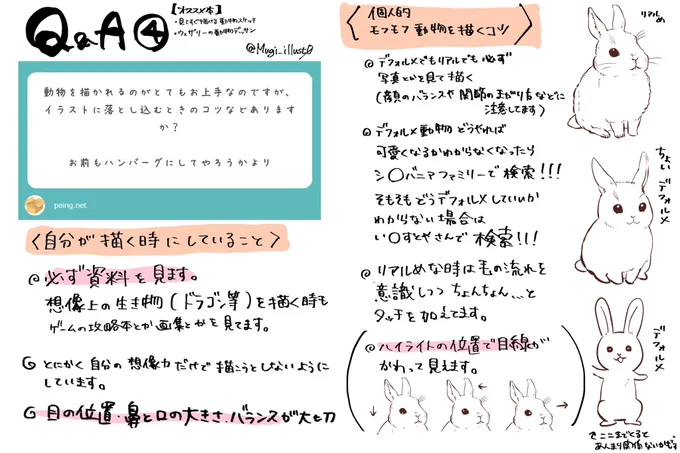 Q&A ④
【オススメ本】
・見てすぐ描ける動物スケッチ
・ウェザリーの動物デッサン
@Mugi_illust0
動物を描かれるのがとてもお上手なのですが、
イラストに落とし込むときのコツなどあります
か?
お前もハンバーグにしてやろうかより
peing.net
〈自分が描く時にしていること〉
◎必ず資料を見ます。
想像上の生き物(ドラゴン等)を描く時も
ゲームの攻略本とか画集とかを見てます。
◎とにかく自分の想像力だけで描こうとしないように
しています。
◎目の位置・鼻と口の大きさ、バランスが大切
〈個人的
モフモフ動物を描くコツ〉
◎デフォルメでもリアルでも必ず
写真とかを見て描く
(顔のバランスや関節のまがり方などに
注意してます)
◎デフォルメ動物どうやれば
可愛くなるかわからなくなったら
シ〇バニアファミリーで検索!!!
そもそもどうデフォルメしていいか
わからない場合は
い〇すとやさんで検索!!!
◎リアルめな時は毛の流れを
意識しつつちょんちょん…と
タッチを加えてます。
◎ハイライトの位置で目線が
かわって見えます。
リアルめ
ちょい
デフォルメ
デフォルメ
ここまでくると
あんまり関係ないかも